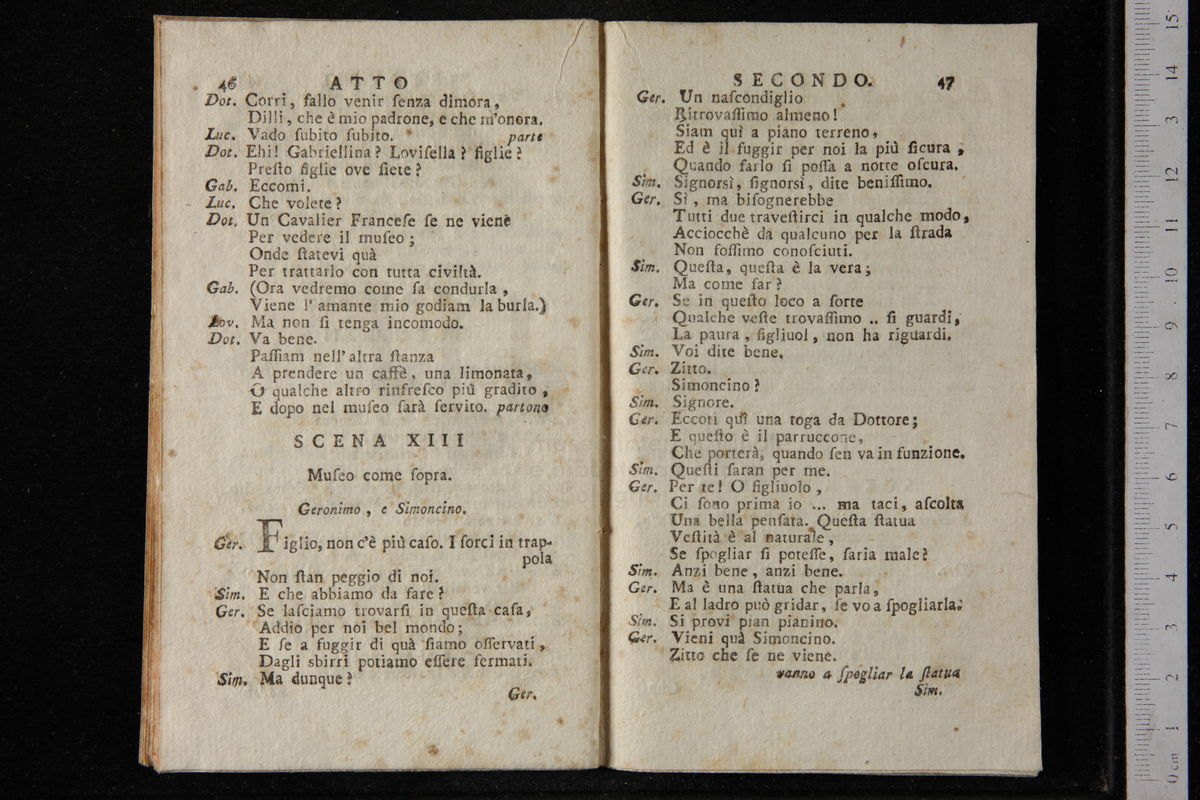 46 ATTO
Dot. Corri, fallo venir ſenza dimora,
Dilli, che è mio padrone, e che m'onora.
Luc. Vado ſubito ſubito. parte
Dot. Ehi! Gabriellina? Loviſella? figlie?
Preſto figlie ove ſiete?
Gab. Eccomi.
Luc. Che volete?
Dot. Un Cavalier Franceſe ſe ne viene
Per vedere il muſeo;
Onde ſtatevi quà
Per trattarlo con tutta civiltà.
Gab. (Ora vedremo come ſa condurla,
Viene l'amante mio godiam la burla.)
Lov. Ma non ſi tenga incomodo.
Dot. Va bene.
Paſſiam nell'altra ſtanza
A prendere un caffè, una limonata,
O qualche altro rinfreſco più gradito,
E dopo nel muſeo ſarà ſervito. partono
SCENA XIII
Muſeo come ſopra.
Geronimo, e Simoncino.
Ger. Figlio, non c'è più caſo. I ſorci in trap-
pola
Non ſtan peggio di noi.
Sim. E che abbiamo da fare?
Ger. Se laſciamo trovarſi in queſta caſa,
Addio per noi bel mondo;
E ſe a fuggir di quà ſiamo oſſervati,
Dagli sbirri potiamo eſſere fermati.
Sim. Ma dunque?
Ger.
SECONDO. 47
Ger. Un naſcondiglio
Ritrovaſſimo almeno!
Siam quì a piano terreno,
Ed è il fuggir per noi la più ſicura,
Quando farlo ſi poſſa a notte oſcura.
Sim. Signorsì, ſignorsì, dite beniſſimo.
Ger. Sì, ma biſognerebbe
Tutti due traveſtirci in qualche modo,
Acciocchè da qualcuno per la ſtrada
Non foſſimo conoſciuti.
Sim. Queſta, queſta è la vera;
Ma come far?
Ger. Se in queſto loco a ſorte
Qualche veſte trovaſſimo .. ſi guardi,
La paura, figliuol, non ha riguardi.
Sim. Voi dite bene.
Ger. Zitto.
Simoncino?
Sim. Signore.
Ger. Eccoti quì una toga da Dottore;
E queſto è il parruccone,
Che porterà, quando ſen va in funzione.
Sim. Queſti ſaran per me.
Ger. Per te! O figliuolo,
Ci ſono prima io ... ma taci, aſcolta
Una bella penſata. Queſta ſtatua
Veſtità è al naturale,
Se ſpogliar ſi poteſſe, ſaria male?
Sim. Anzi bene, anzi bene.
Ger. Ma è una ſtatua che parla,
E al ladro può gridar, ſe vo a ſpogliarla.
Sim. Si provi pian pianino.
Ger. Vieni quà Simoncino.
Zitto che ſe ne viene.
vanno a ſpogliar la ſtatua
Sim.